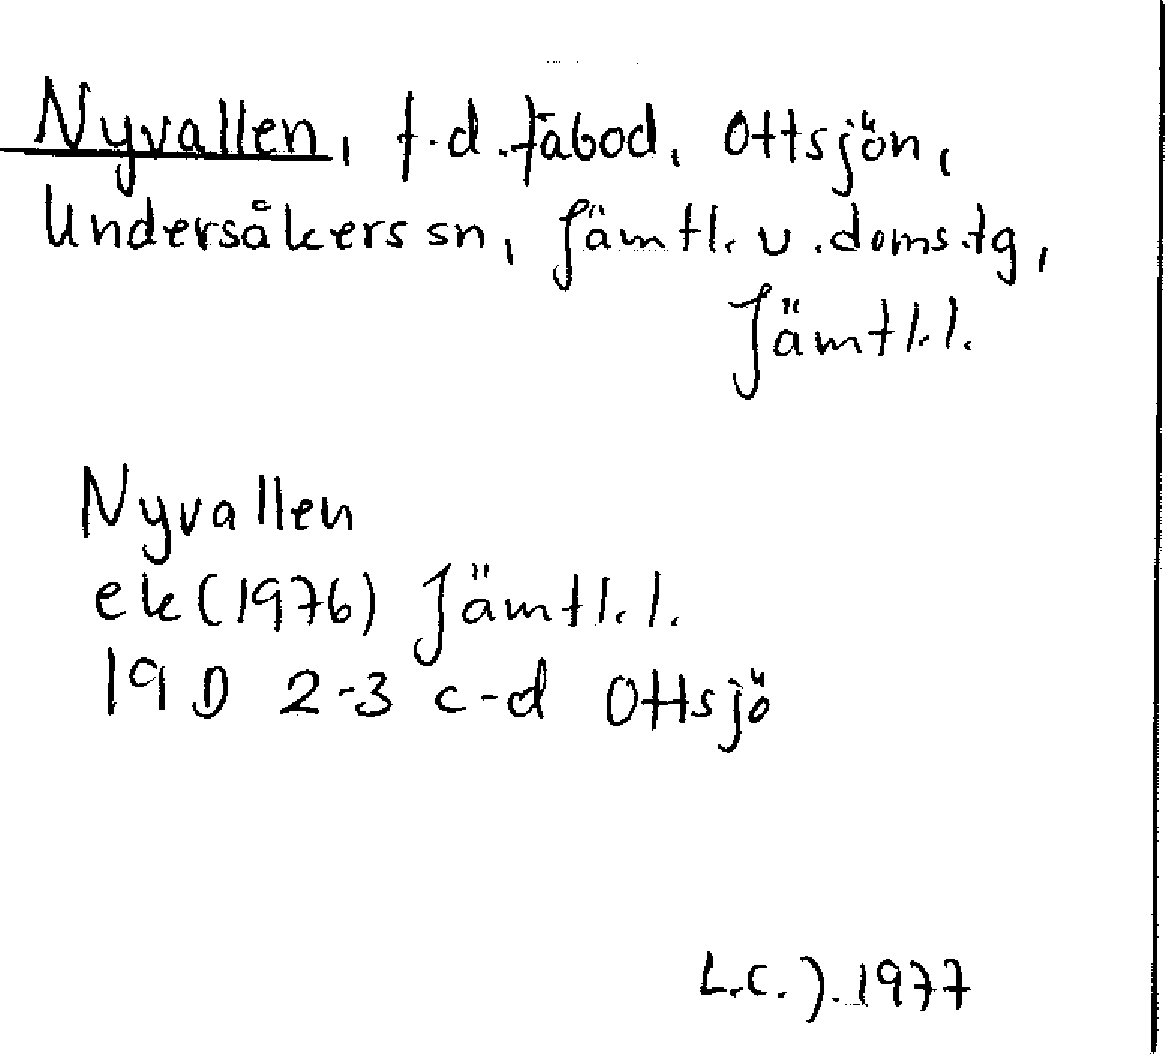 Nyvallen, f.d. fäbod, Ottsjön,
Undersåkers sn, Jämtl. v. doms.tg,
Jämtl.l.
Nyvallen
ek (1976) Jämtl.l.
19 D 2-3 c-d Ottsjö
L.C.J. 1977